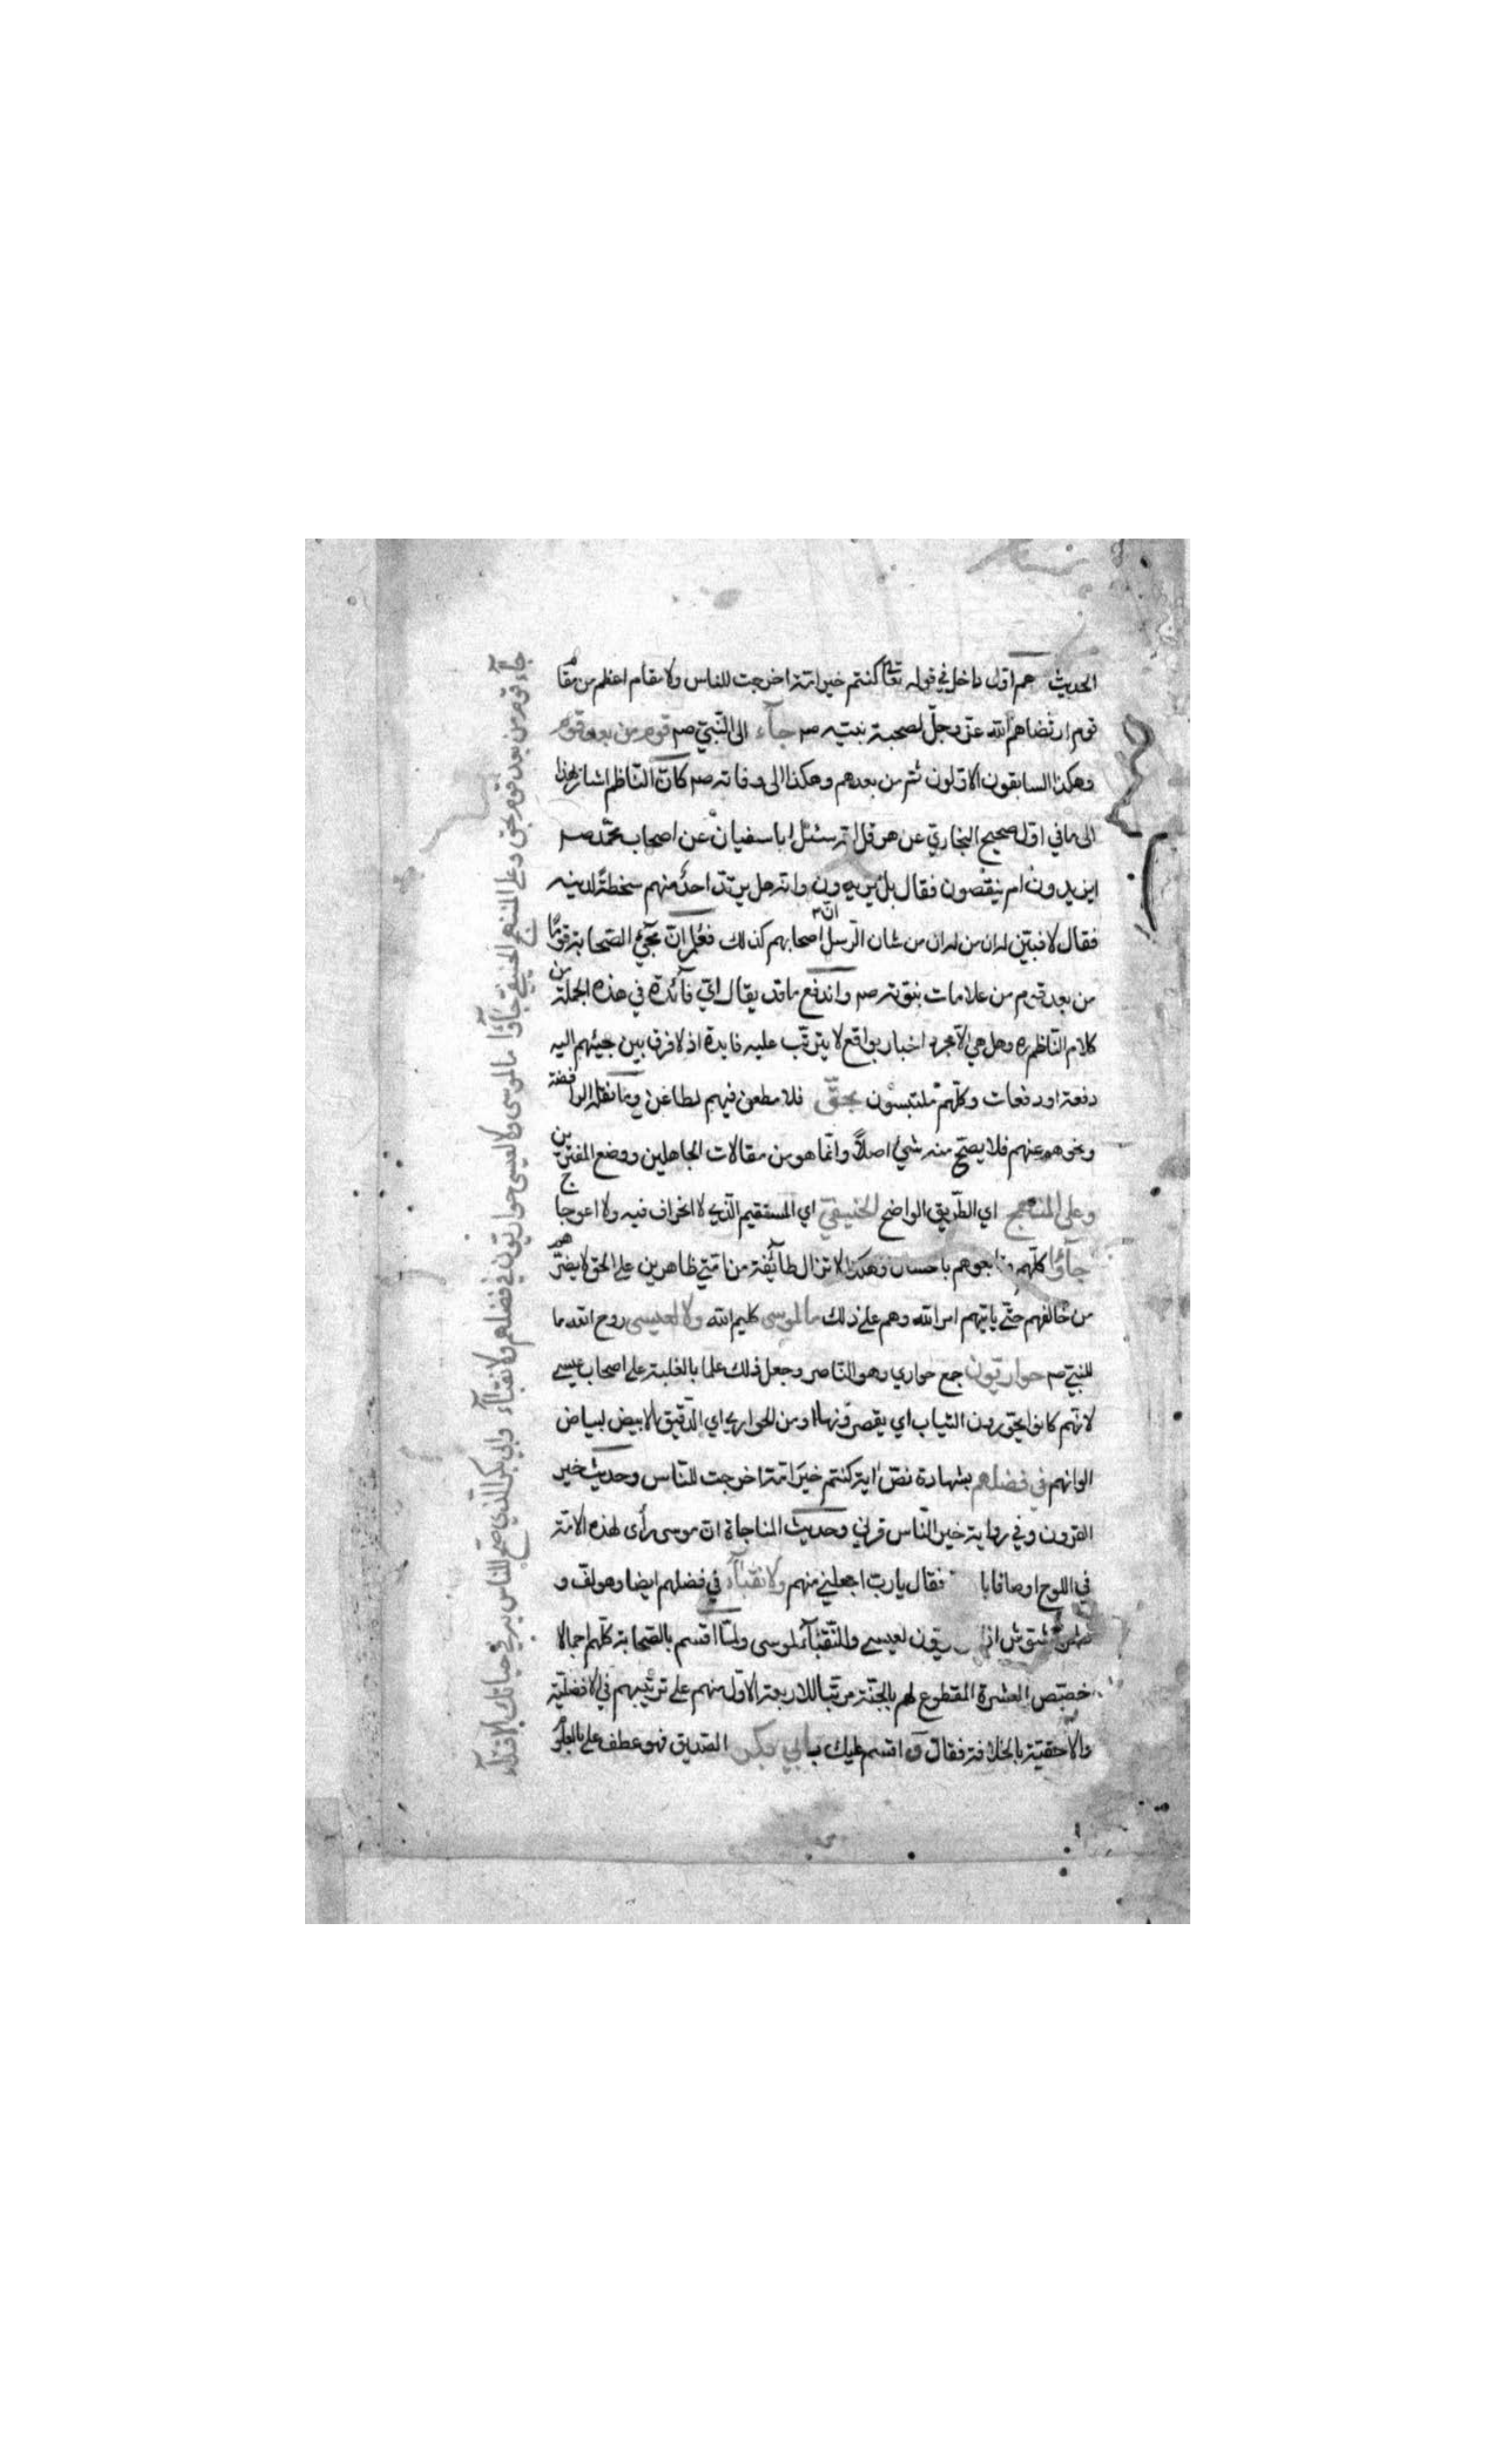 الحديث هم اول داخل في قوله تعالى كنتم خير امة اخرجت للناس ولا مقام اعظم من مقام
قوم ارتضاهم الله عز وجل لصحبة نبيه صم جاء الى النبي صم قوم من بعد قوم
وهكذا السابقون الاولون ثم من بعدهم وهكذا الى وفاته صم كان الناظم اشار بهذا
الى ما في اول صحيح البخاري عن هرقل انه سئل ابا سفيان عن اصحاب محمد صم
ايزيدون ام ينقصون فقال بل يزيدون وانه هل يرتد احد منهم سخطة لدينه
فقال لا فبين له ان من شان الرسل ان اصحابهم كذلك فعلم ان مجيء الصحابة قوما
من بعد قوم من علامات نبوته صم واندفع ما قد يقال اي فائدة في هذه الجملة من
كلام الناظم ره وهل هي الا مجرد اخبار بواقع لا يترتب عليه فايدة اذ لا فرق بين مجيئهم اليه
دفعة او دفعات وكلهم ملتبسون بحق فلا مطعن فيهم لطاعن وما نقله الرافضة
ونحوهم عنهم فلا يصح منه شيء اصلا وانما هو من مقالات الجاهلين ووضع المفترين
وعلى المنهج اي الطريق الواضح الحنيفي اي المستقيم الذي لا انحراف فيه ولا اعوجاج
جاؤا كلهم وتابعوهم باحسان وهكذا لا تزال طائفة من امتي ظاهرين على الحق لا يضرهم
من خالفهم حتى ياتيهم امر الله وهم على ذلك ما لموسى كليم الله ولا لعيسى روح الله ما
للنبي صم حواريون جمع حواري وهو الناصر وجعل ذلك علما بالغلبة على اصحاب عيسى
لانهم كانوا يحورون الثياب اي يقصرونها او من الحواري اي الدقيق الابيض لبياض
الوانهم في فضلهم بشهادة نص اية كنتم خير امة اخرجت للناس وحديث خير
القرون وفي رواية خير الناس قرني وحديث المناجاة ان موسى رأى لهذه الامة
في اللوح اوصافا فقال يا رب اجعلني منهم ولا نقباء في فضلهم ايضا وهو لف و
نشر مشوش لعيسى والنقباء لموسى ولما اقسم بالصحابة كلهم اجمالا
خصص العشرة المقطوع لهم بالجنة مرتبا للاربعة الاول منهم على ترتيبهم في الافضلية
والاحقية بالخلافة فقال و اقسم عليك بابي بكر الصديق فهو عطف على بالعلوم
جاء قوم من بعد قوم بحق وعلى المنهج الحنيفي جاؤا ما لموسى ولا لعيسى حواريون في فضلهم ولا نقباء وابي بكر الذي صح للناس به في حياتك الاقتداء